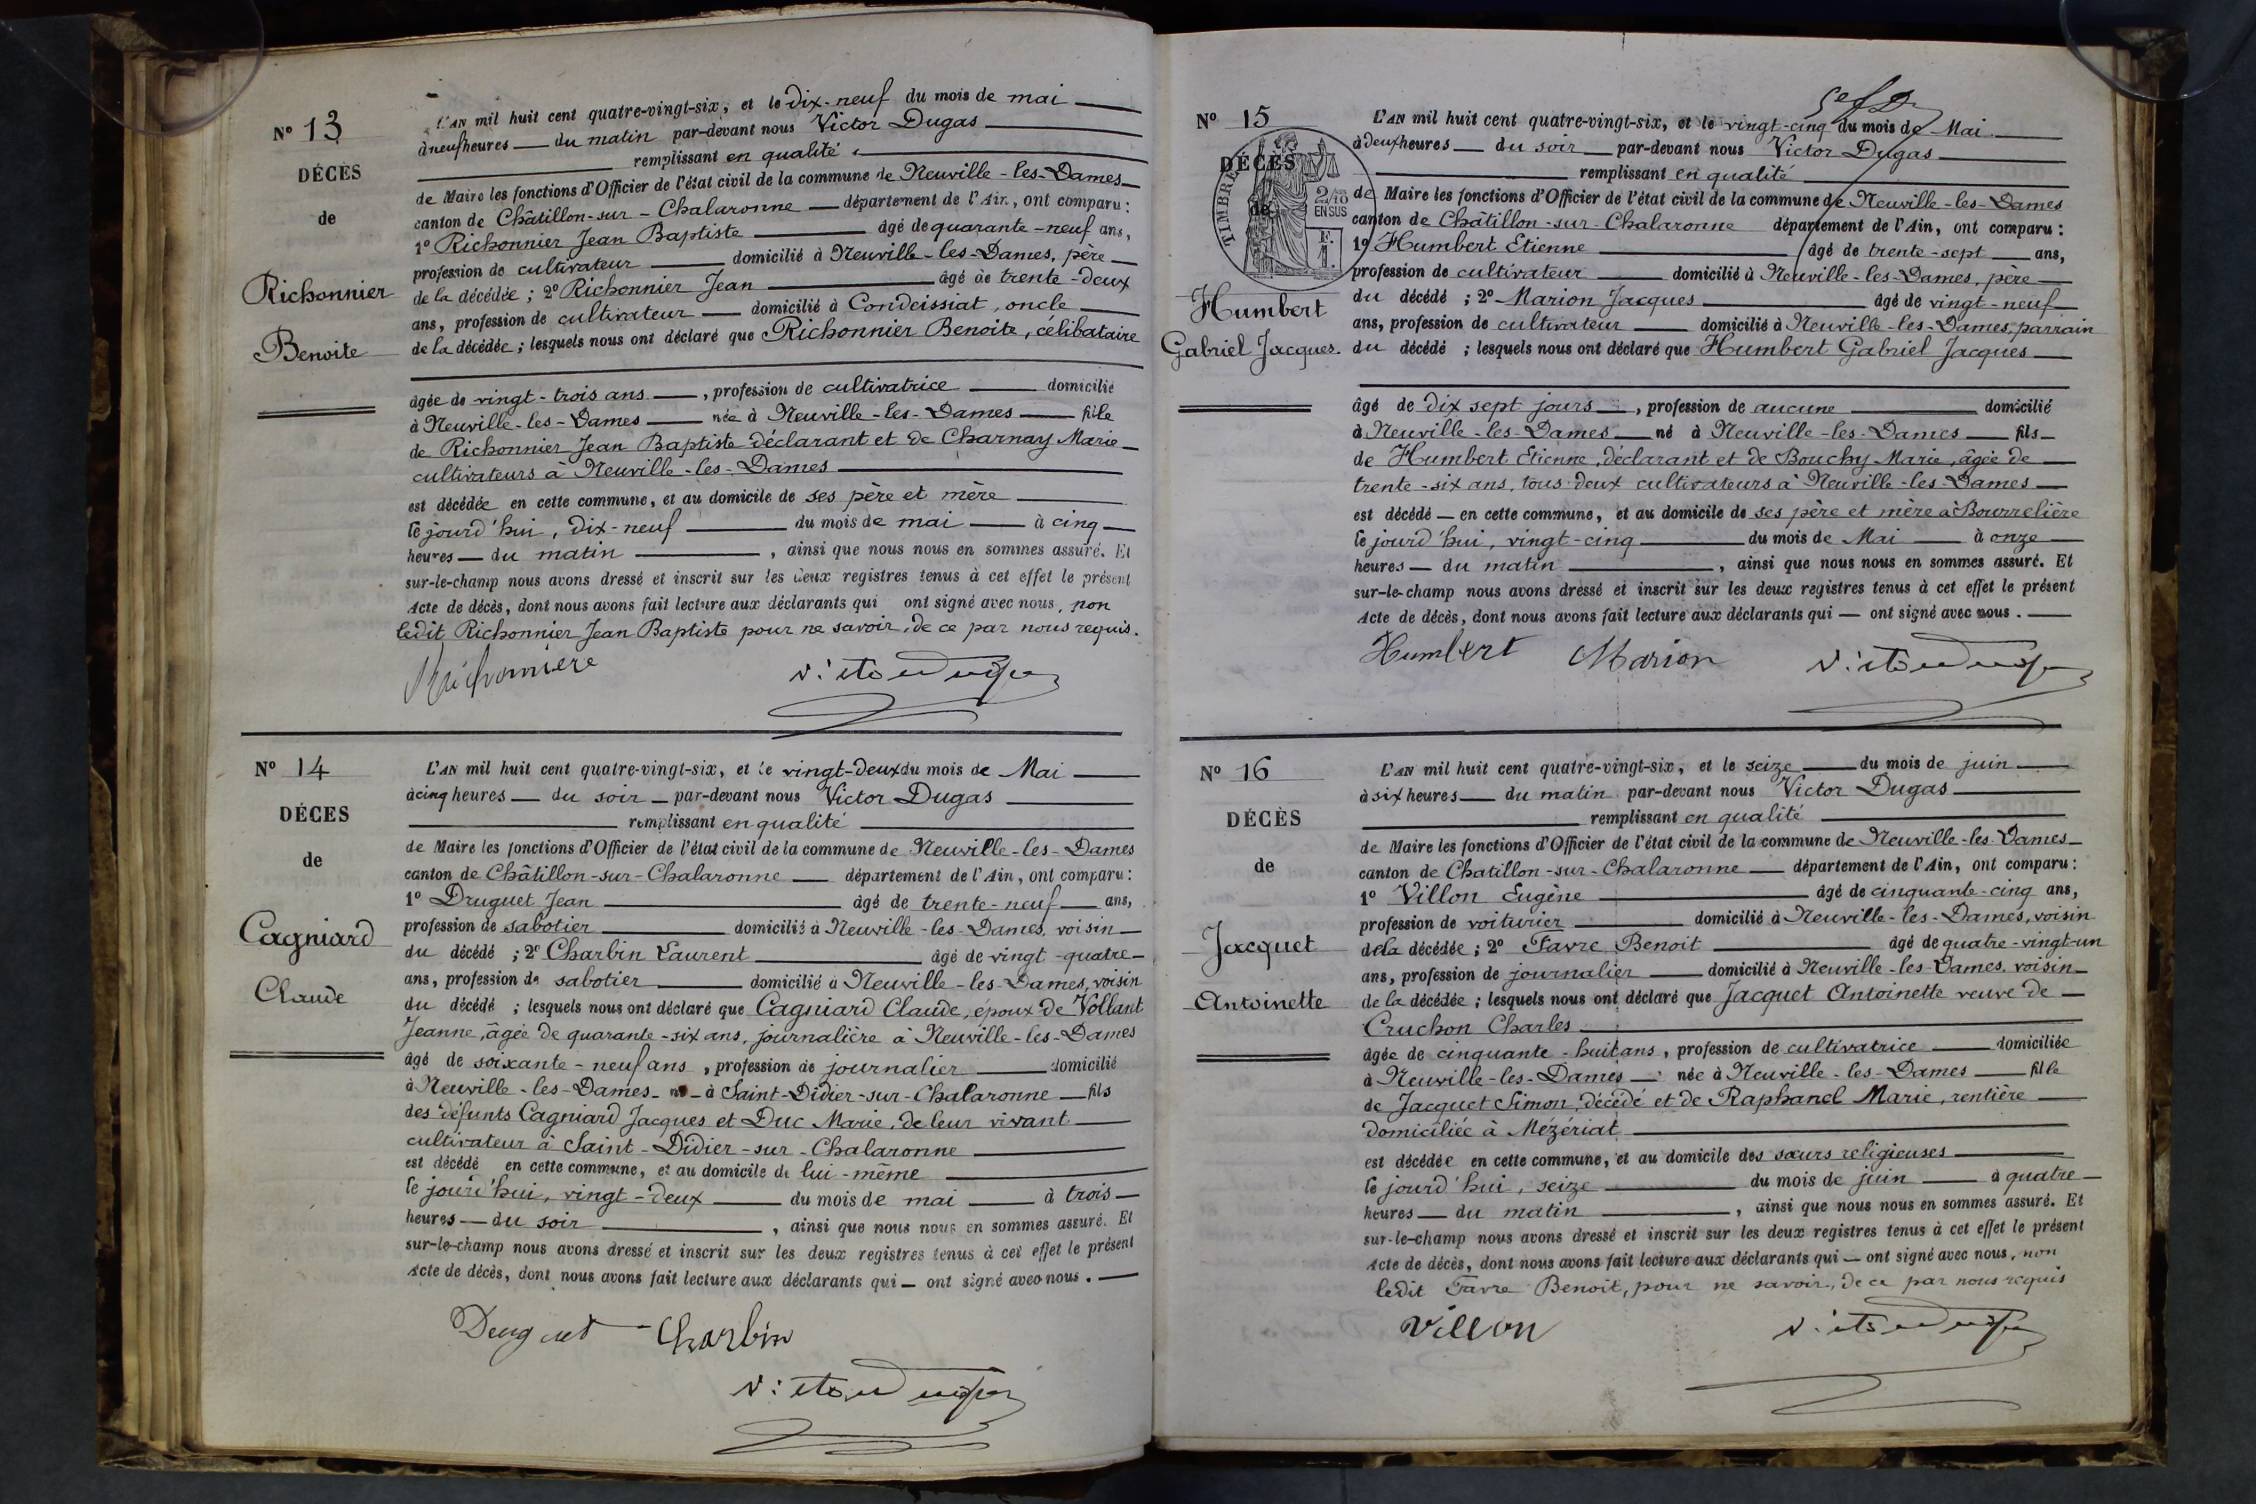 N° 13
DÉCÈS
de
Richonnier
Benoite
L'AN mil huit cent quatre-vingt-six, et le dix-neuf du mois de mai
à neuf heures du matin par-devant nous Victor Dugas
remplissant en qualité
de Maire les fonctions d'Officier de l'état civil de la commune de Neuville-les-Dames
canton de Châtillon-sur-Chalaronne département de l'Ain, ont comparu :
1° Richonnier Jean Baptiste âgé de quarante-neuf ans,
profession de cultivateur domicilié à Neuville-les-Dames, père
de la décédée ; 2° Richonnier Jean âgé de trente-deux
ans, profession de cultivateur domicilié à Condeissiat, oncle
de la décédée ; lesquels nous ont déclaré que Richonnier Benoite, célibataire
âgée de vingt-trois ans, profession de cultivatrice domicilié
à Neuville-les-Dames née à Neuville-les-Dames fille
de Richonnier Jean Baptiste déclarant et de Charnay Marie
cultivateurs à Neuville-les-Dames
est décédée en cette commune, et au domicile de ses père et mère
le jourd'hui, dix-neuf du mois de mai à cinq
heures du matin, ainsi que nous nous en sommes assuré. Et
sur-le-champ nous avons dressé et inscrit sur les deux registres tenus à cet effet le présent
Acte de décès, dont nous avons fait lecture aux déclarants qui ont signé avec nous, non
ledit Richonnier Jean Baptiste pour ne savoir, de ce par nous requis.
N° 14
DÉCÈS
de
Cagniard
Claude
L'AN mil huit cent quatre-vingt-six, et le vingt-deux du mois de Mai
à cinq heures du soir par-devant nous Victor Dugas
remplissant en qualité
de Maire les fonctions d'Officier de l'état civil de la commune de Neuville-les-Dames
canton de Châtillon-sur-Chalaronne département de l'Ain, ont comparu :
1° Druguet Jean âgé de trente-neuf ans,
profession de sabotier domicilié à Neuville-les-Dames, voisin
du décédé ; 2° Charbin Laurent âgé de vingt-quatre
ans, profession de sabotier domicilié à Neuville-les-Dames, voisin
du décédé ; lesquels nous ont déclaré que Cagniard Claude, époux de Vollant
Jeanne, âgée de quarante-six ans, journalière à Neuville-les-Dames
âgé de soixante-neuf ans, profession de journalier domicilié
à Neuville-les-Dames à Saint-Didier-sur-Chalaronne fils
des défunts Cagniard Jacques et Duc Marie, de leur vivant
cultivateur à Saint-Didier-sur-Chalaronne
est décédé en cette commune, et au domicile de lui-même
le jourd'hui, vingt-deux du mois de mai à trois
heures du soir, ainsi que nous nous en sommes assuré. Et
sur-le-champ nous avons dressé et inscrit sur les deux registres tenus à cet effet le présent
Acte de décès, dont nous avons fait lecture aux déclarants qui ont signé avec nous.
Charbin
N° 15
DÉCÈS
de
TIMBRE
2/10
EN SUS
Humbert
Gabriel Jacques.
L'AN mil huit cent quatre-vingt-six, et le vingt-cinq du mois de Mai
à deux heures du soir par-devant nous Victor Dugas
remplissant en qualité
de Maire les fonctions d'Officier de l'état civil de la commune de Neuville-les-Dames
canton de Châtillon-sur-Chalaronne département de l'Ain, ont comparu :
1° Humbert Etienne âgé de trente-sept ans,
profession de cultivateur domicilié à Neuville-les-Dames, père
du décédé ; 2° Marion Jacques âgé de vingt-neuf
ans, profession de cultivateur domicilié à Neuville-les-Dames, parrain
du décédé ; lesquels nous ont déclaré que Humbert Gabriel Jacques
âgé de dix sept jours, profession de aucune domicilié
à Neuville-les-Dames né à Neuville-les-Dames fils
de Humbert Etienne, déclarant et de Bouchy Marie, âgée de
trente-six ans, tous deux cultivateurs à Neuville-les-Dames
est décédé en cette commune, et au domicile de ses père et mère à Bourrelière
le jourd'hui, vingt-cinq du mois de Mai à onze
heures du matin, ainsi que nous nous en sommes assuré. Et
sur-le-champ nous avons dressé et inscrit sur les deux registres tenus à cet effet le présent
Acte de décès, dont nous avons fait lecture aux déclarants qui ont signé avec nous.
Humbert Marion
N° 16
DÉCÈS
de
Jacquet
Antoinette
L'AN mil huit cent quatre-vingt-six, et le seize du mois de juin
à six heures du matin par-devant nous Victor Dugas
remplissant en qualité
de Maire les fonctions d'Officier de l'état civil de la commune de Neuville-les-Dames
canton de Chatillon-sur-Chalaronne département de l'Ain, ont comparu :
1° Villon Eugène âgé de cinquante-cinq ans,
profession de voiturier domicilié à Neuville-les-Dames, voisin
de la décédée ; 2° Favre Benoit âgé de quatre-vingt-un
ans, profession de journalier domicilié à Neuville-les-Dames, voisin
de la décédée ; lesquels nous ont déclaré que Jacquet Antoinette veuve de
Cruchon Charles
âgée de cinquante-huit ans, profession de cultivatrice domiciliée
à Neuville-les-Dames née à Neuville-les-Dames fille
de Jacquet Simon, décédé et de Raphanel Marie, rentière
domiciliée à Mézériat
est décédée en cette commune, et au domicile des sœurs religieuses
le jourd'hui, seize du mois de juin à quatre
heures du matin, ainsi que nous nous en sommes assuré. Et
sur-le-champ nous avons dressé et inscrit sur les deux registres tenus à cet effet le présent
Acte de décès, dont nous avons fait lecture aux déclarants qui ont signé avec nous, non
ledit Favre Benoit, pour ne savoir, de ce par nous requis
Villon